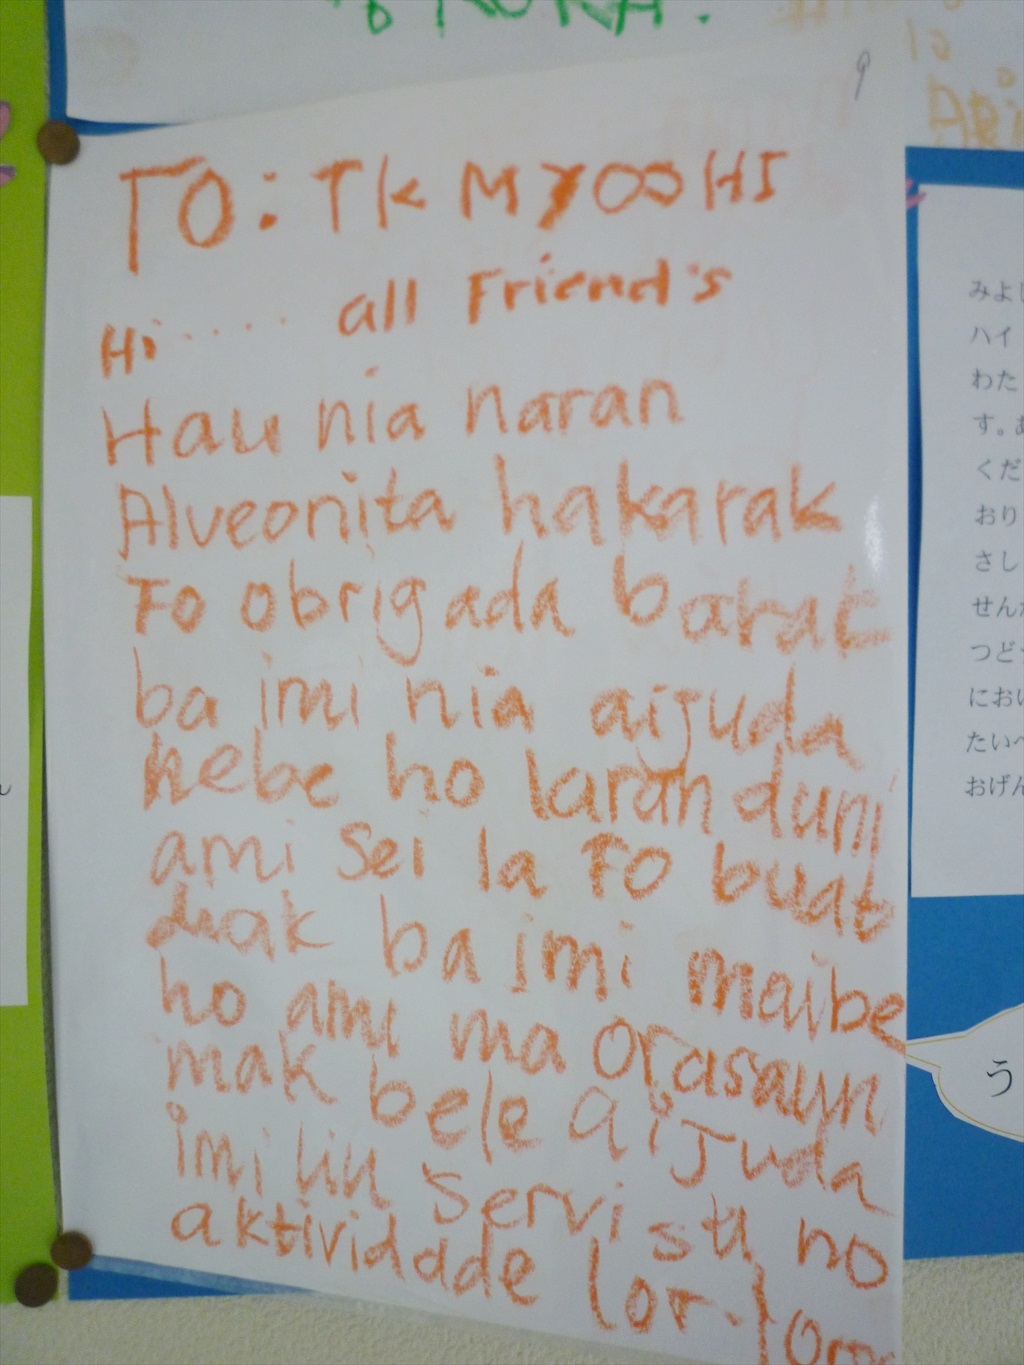 TO: TK MYOOHI
Hi..... all Friend's
Hau nia naran
Alveonita hakarak
Fo obrigada barat
ba imi nia aijuda
nebe ho laran duni
ami sei la Fo buat
diak ba imi maibe
ho ami ma orasaun
mak bele aijuda
imi liu servisu no
aktividade lor-loron
9
みよし
ハイ
わた
す。あ
くだ
おり
さし
せんか
つどう
におい
たいへ
おげん
う